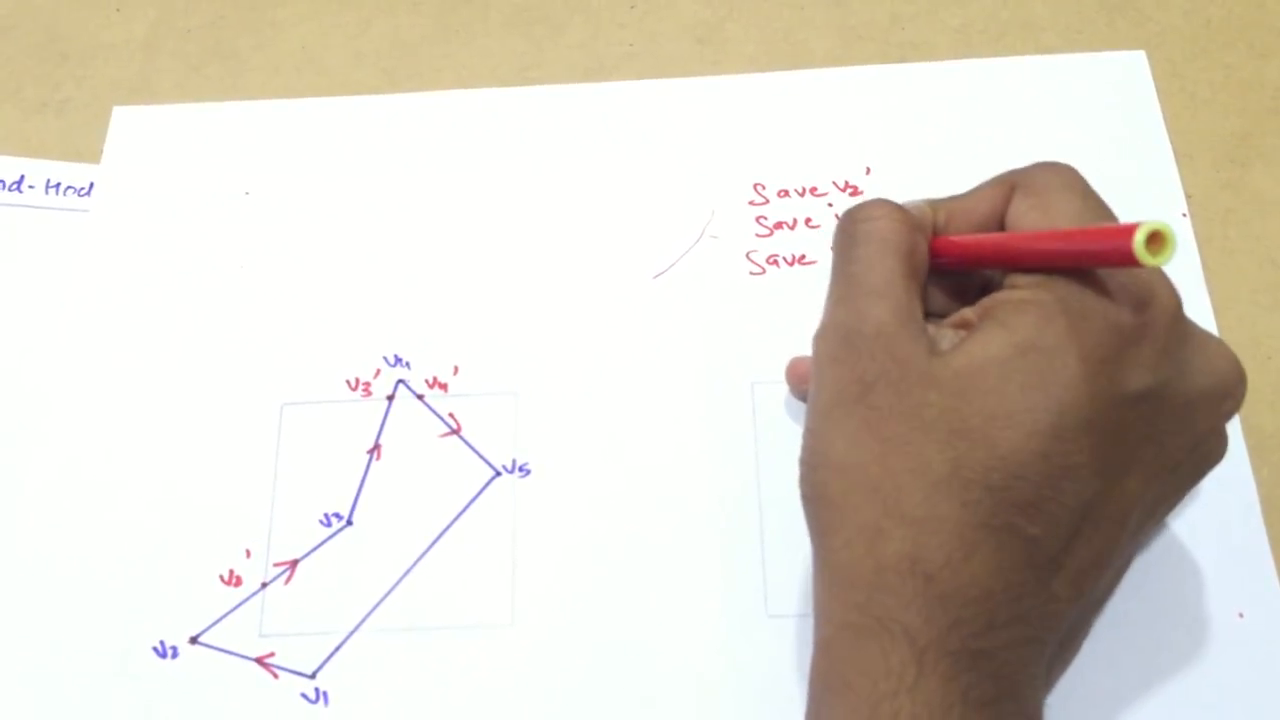 nd-Hod
Save V2'
Save
Save
V4
V3' V4'
V5
V3
V2'
V2
V1